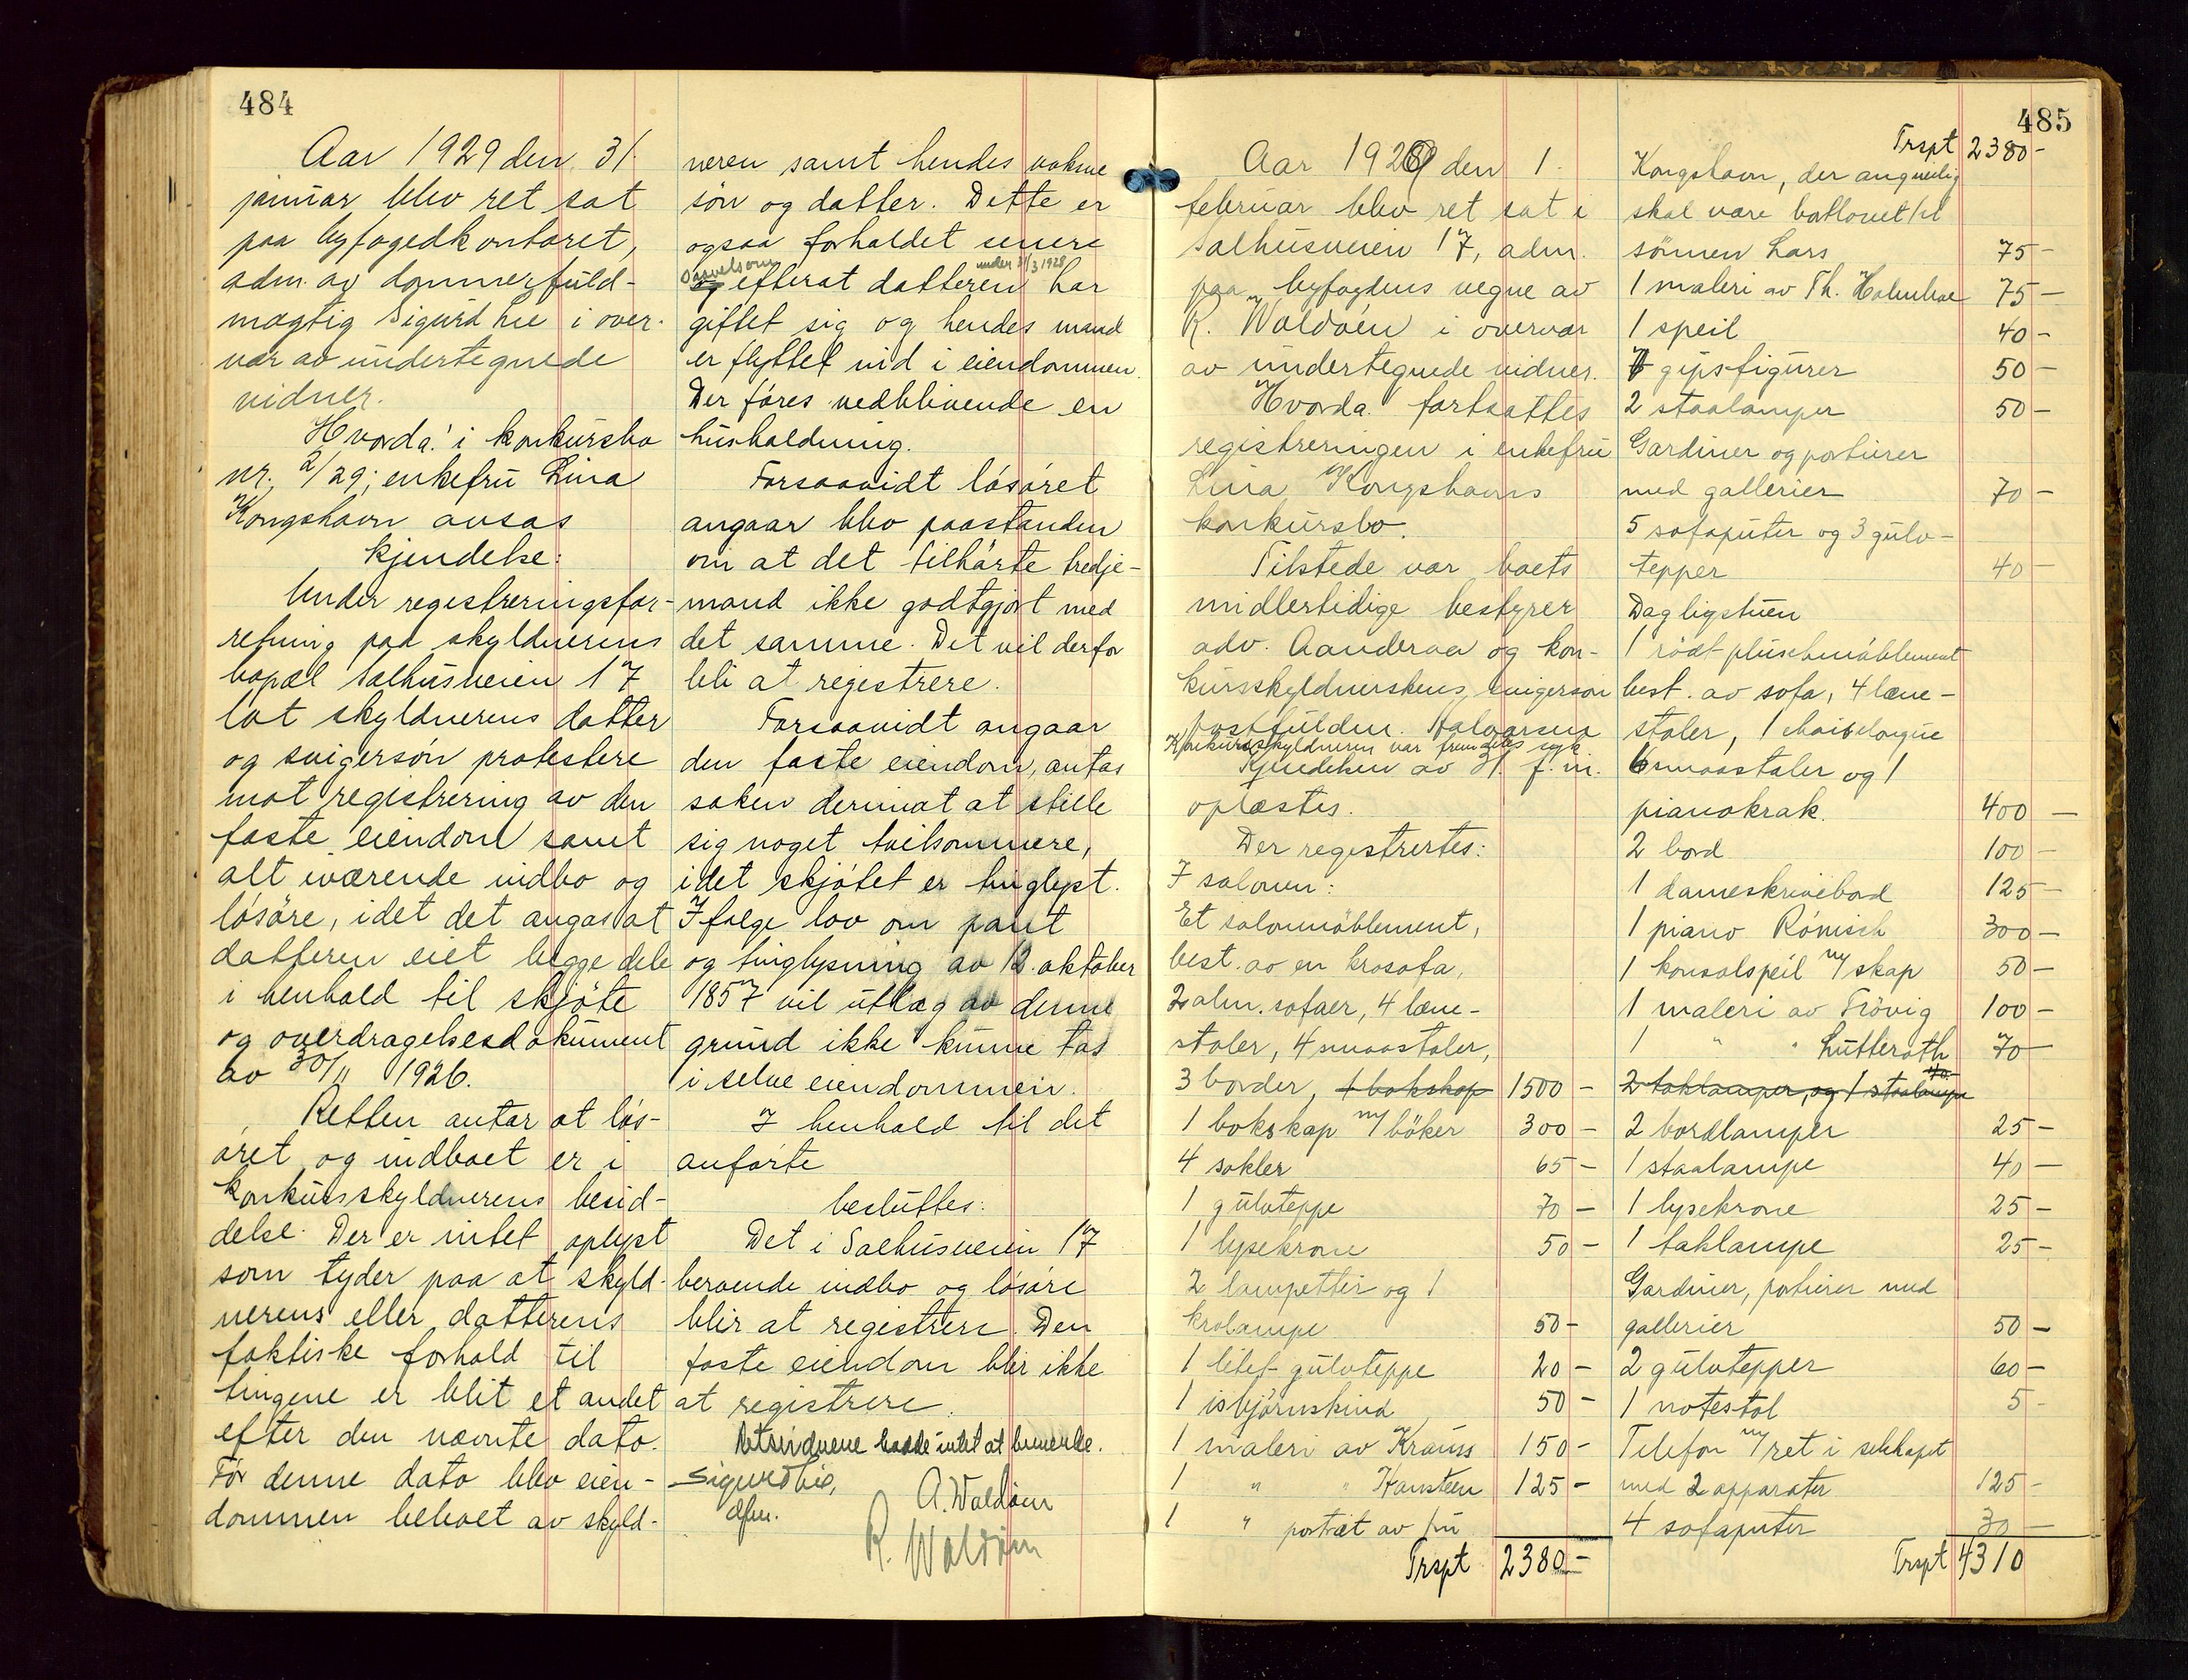 484
Aar 1929 den 31.
januar blev ret sat
paa byfogedkontoret,
adm. av dommerfuld-
mægtig Sigurd Lie i over-
vær av undertegnede
vidner.
Hvorda: i konkursbo
nr. 2/29; enkefru Lina
Kongshavn avsas
kjendelse:
Under registreringsfor-
retning paa skyldnerens
bopæl Salhusveien 17
lot skyldnerens datter
og svigersön protestere
mot registrering av den
faste eiendom samt
alt iværende indbo og
lösöre, idet det angas at
datteren eiet begge dele
i henhold til skjöte
og overdragelsesdokument
av 30/11 1926.
Retten antar at lös-
öret og indboet er i
konkursskyldnerens besid-
delse. Der er intet oplyst
som tyder paa at skyld-
nerens eller datterens
faktiske forhold til
tingene er blit et andet
efter den nævnte dato.
För denne dato blev eien-
dommen beboet av skyld-
neren samt hendes voksne
sön og datter. Dette er
ogsaa forholdet senere
saavelsom efterat datteren under 31/3 1928 har
giftet sig og hendes mand
er flyttet ind i eiendommen.
Der föres vedblivende en
husholdning.
Forsaavidt lösöret
angaar blev paastanden
om at det tilhörte tredje-
mand ikke godtgjort med
det samme. Det vil derfor
bli at registrere.
Forsaavidt angaar
den faste eiendom, antas
saken derimot at stille
sig noget tvilsommere,
idet skjötet er tinglyst.
Ifölge lov om pant
og tinglysning av 12. oktober
1857 vil utlæg av denne
grund ikke kunne tas
i selve eiendommen.
I henhold til det
anförte
besluttes:
Det i Salhusveien 17
beroende indbo og lösöre
blir at registrere. Den
faste eiendom blir ikke
at registrere.
Retsvidnene hadde intet at bemerke.
Sigurd Lie,
dfm.
A. Waldöen
R. Waldöen
485
Aar 1929 den 1.
februar blev ret sat i
Salhusveien 17, adm.
paa byfogdens vegne av
R. Waldöen i overvær
av undertegnede vidner.
Hvorda: fortsattes
registreringen i enkefru
Lina Kongshavns
konkursbo.
Tilstede var boets
midlertidige bestyrer
adv. Aanderaa og kon-
kursskyldnerskens svigersön
postfuldm. Halvorsen
Konkursskyldneren var fremdeles syk
Kjendelsen av 31. f.m.
oplæstes.
Der registrertes:
I salonen:
Et salonmöblement,
best. av en krosofa,
2 alm. sofaer, 4 læne-
stoler, 4 smaastoler,
3 border, 1 bokskap 1500 -
1 bokskap m/ böker 300 -
4 sokler 65 -
1 gulvteppe 70 -
1 lysekrone 50 -
2 lampetter og 1
krolampe 50 -
1 litet gulvteppe 20 -
1 isbjörnskind 50 -
1 maleri av Krauss 150 -
1 " " Hansteen 125 -
1 " portræt av fru
Trspt 2380 -
Trspt 2380 -
Kongshavn, der angivelig
skal være bortlovet til
sönnen Lars 75 -
1 maleri av Th. Holmboe 75 -
1 speil 40 -
7 gipsfigurer 50 -
2 staalamper 50 -
Gardiner og portierer
med gallerier 70 -
5 sofaputer og 3 gulv-
tepper 40 -
Dagligstuen
1 rödt pluschmöblement
best. av sofa, 4 læne-
stoler, 1 chaiselongue
6 smaastoler og 1
pianokrak. 400 -
2 bord 100 -
1 dameskrivebord 125 -
1 piano Römisch 300 -
1 konsolspeil m/ skap 50 -
1 maleri av Trövig 100 -
1 " " Lutteroth 70 -
2 taklamper, og 1 staalampe
2 bordlamper 25 -
1 staalampe 40 -
1 lysekrone 25 -
1 taklampe 25 -
Gardiner, portierer med
gallerier 50 -
2 gulvtepper 60 -
1 notestol 5 -
Telefon m/ ret i selskapet
med 2 apparater 125 -
4 sofaputer 30 -
Trspt 4310